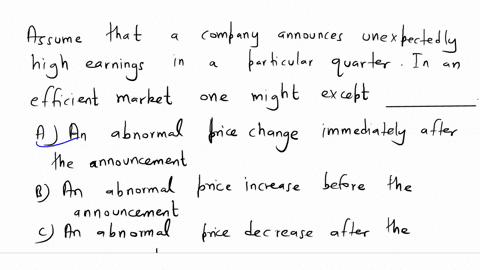 Assume that a company announces unexpectedly
high earnings in a particular quarter. In an
efficient market one might except ________.
A) An abnormal price change immediately after
the announcement
B) An abnormal price increase before the
announcement
C) An abnormal price decrease after the